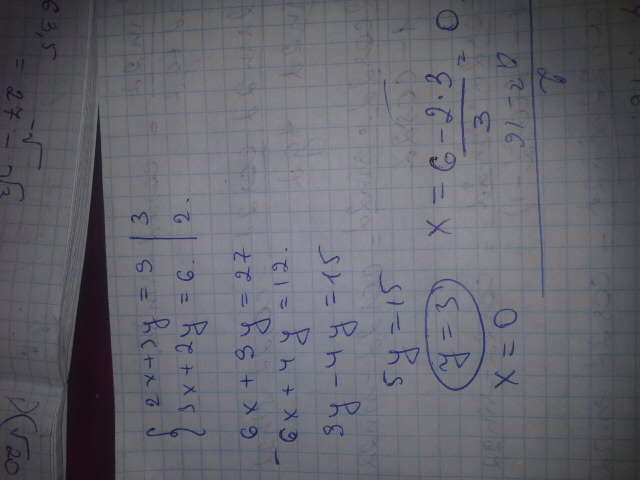 { 2x+3y = 9 | 3
3x+2y = 6. | 2.
6x + 9y = 27
- 6x + 4y = 12.
9y - 4y = 15
5y = 15
y = 3
x = 6 - 2·3 / 3 = 0
x = 0